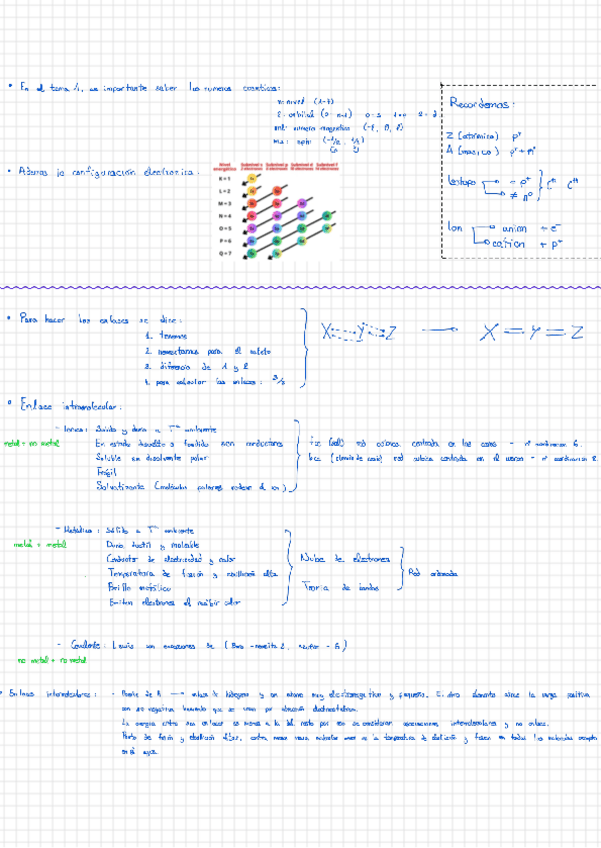 • En el tema 1, es importante saber los números cuánticos:
n: nivel (1-7)
l: orbital (0 - n-1) 0-s 1-p 2-d
ml: número magnético (-l, 0, l)
ms: spin (-1/2, +1/2)
• Además la configuración electrónica.
Nivel energético
K = 1
L = 2
M = 3
N = 4
O = 5
P = 6
Q = 7
Recordemos:
Z (atómico) p⁺
A (másico) p⁺ + n⁰
Isótopo = p⁺
≠ n⁰
C¹²
C¹⁴
Ion anion + e⁻
cation + p⁺
• Para hacer los enlaces se dice:
1. tenemos
2. necesitamos para el octeto
3. diferencia de 1 y 2
4. para calcular los enlaces: 3/2
X Y Z → X = Y = Z
• Enlace intramolecular:
- Iónico: Sólido y duro a Tª ambiente
metal + no metal
En estado disuelto o fundido son conductores
Soluble en disolvente polar
Frágil
Solvatizante (moléculas polares rodean el ion)
fcc red cúbica centrada en las caras - nº coordinación 6.
bcc red cúbica centrada en el - nº coordinación 8
- Metálico: Sólido a Tª ambiente
metal + metal
Duro, dúctil y maleable
Conductor de electricidad y calor
Temperatura de fusión y ebullición alta
Brillo metálico
Emiten electrones al recibir calor
Nube de electrones
Teoría de bandas
Red ordenada
- Covalente: Lewis con excepciones de
no metal + no metal
Enlaces intermoleculares: - Puente de H → enlace de hidrógeno y un átomo muy electronegativo y pequeño. El otro elemento atrae la carga positiva
con su negativa haciendo que se unan por atracción electrostática.
La energía entre sus enlaces es menor a la del resto por eso se consideran interacciones intermoleculares y no enlaces.
Punto de fusión y ebullición altos,
en el agua.